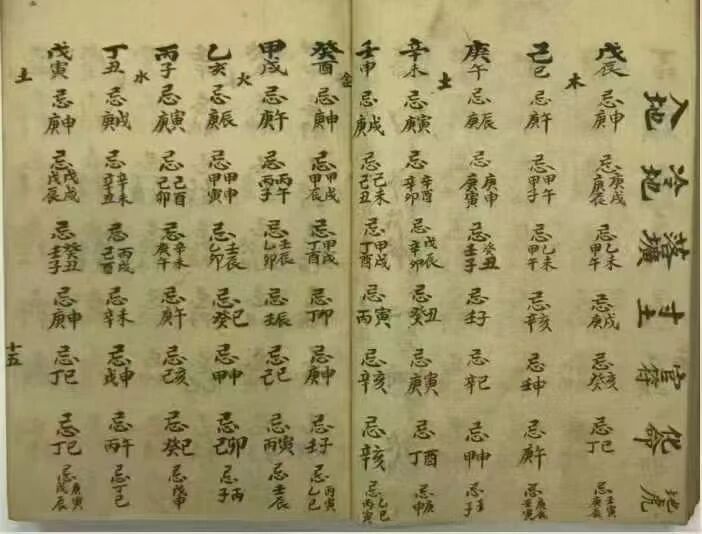 入地 冷地 落壙 寸土 官符 化命 地虎
戊辰 忌庚申 忌庚戌庚辰 忌乙未甲午 忌庚戌 忌癸亥 忌丁巳 忌壬寅庚辰
木
己巳 忌庚午 忌甲午甲子 忌乙未甲午 忌辛亥 忌壬申 忌庚午 忌庚辰壬寅
庚午 忌庚辰 忌庚申庚寅 忌癸丑壬子 忌壬子 忌辛巳 忌甲申 忌壬子
土
辛未 忌庚寅 忌辛酉辛卯 忌戊辰辛卯 忌癸丑 忌庚寅 忌丁酉 忌庚申
壬申 忌庚戌 忌己未己丑 忌甲戌丁酉 忌丙寅 忌辛亥 忌辛亥 忌乙巳丙寅
金
癸酉 忌庚申 忌甲戌甲辰 忌甲戌丁酉 忌丁卯 忌庚申 忌壬子 忌丙寅乙巳
甲戌 忌庚午 忌丙午丙子 忌壬辰乙卯 忌壬辰 忌己巳 忌丙寅 忌壬辰
火
乙亥 忌庚辰 忌甲申甲寅 忌壬辰乙卯 忌癸巳 忌甲申 忌己卯 忌丙子
丙子 忌庚寅 忌己酉己卯 忌辛未庚午 忌庚午 忌己亥 忌癸巳 忌戊申
水
丁丑 忌庚戌 忌辛未辛丑 忌丙戌己酉 忌辛未 忌戊申 忌丙午 忌丁巳
戊寅 忌庚申 忌戊戌戊辰 忌癸丑壬子 忌庚申 忌丁巳 忌丁巳 忌庚寅戊辰
土
十五